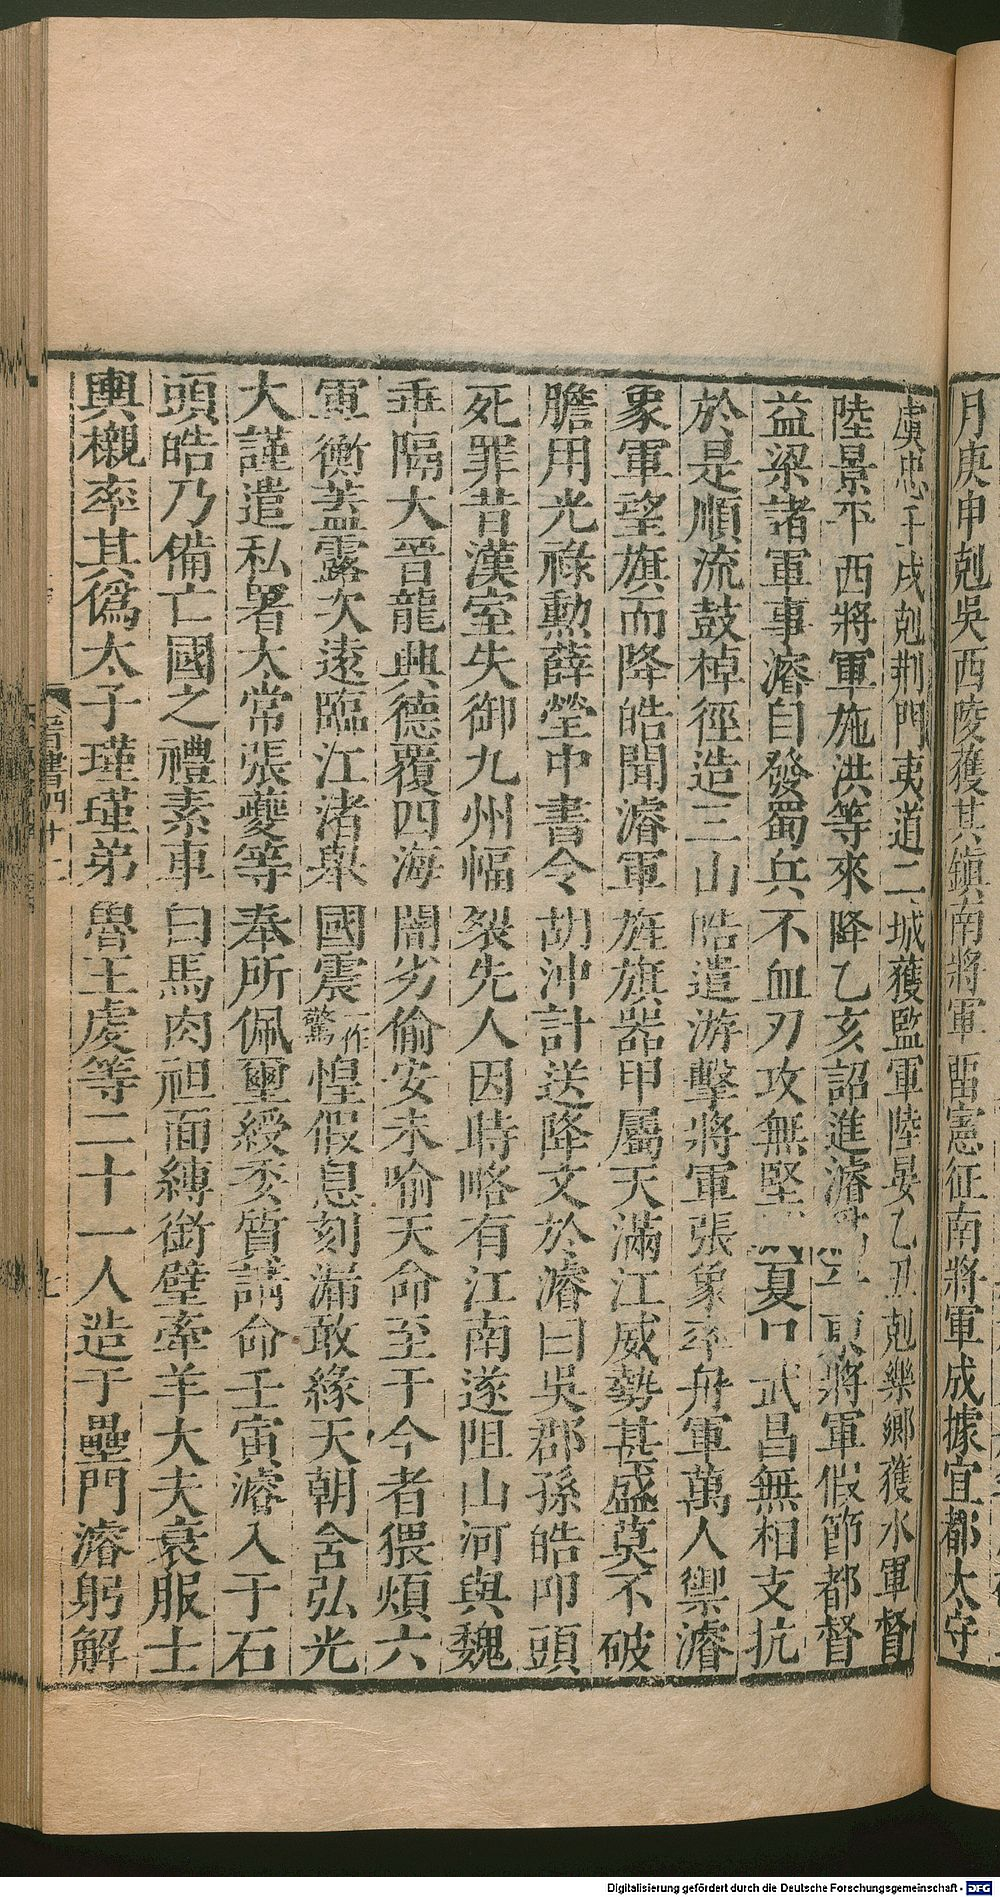 月庚申剋吳西陵獲其鎮南將軍畱憲征南將軍成據宜都太守
虞忠壬戌剋荆門夷道二城獲監軍陸晏乙丑剋樂鄉獲水軍督
陸景平西將軍施洪等來降乙亥詔進濬爲平東將軍假節都督
益梁諸軍事濬自發蜀兵不血刃攻無堅 夏口武昌無相支抗
於是順流鼓棹徑造三山皓遣游擊將軍張象率舟軍萬人禦濬
象軍望旗而降皓聞濬軍旌旗器甲屬天滿江威勢甚盛莫不破
膽用光祿勳薛瑩中書令胡沖計送降文於濬曰吳郡孫皓叩頭
死罪昔漢室失御九州幅裂先人因時略有江南遂阻山河與魏
乖隔大晉龍興德覆四海闇劣偷安未喻天命至于今者猥煩六
軍衡蓋露次遠臨江渚舉國震一作驚惶假息刻漏敢緣天朝含弘光
大謹遣私署太常張夔等奉所佩璽綬委質請命壬寅濬入于石
頭皓乃備亡國之禮素車白馬肉袒面縛銜璧牽羊大夫衰服士
輿櫬率其僞太子瑾瑾弟魯王虔等二十一人造于壘門濬躬解
晉書四十二
七
Digitalisierung gefördert durch die Deutsche Forschungsgemeinschaft - DFG